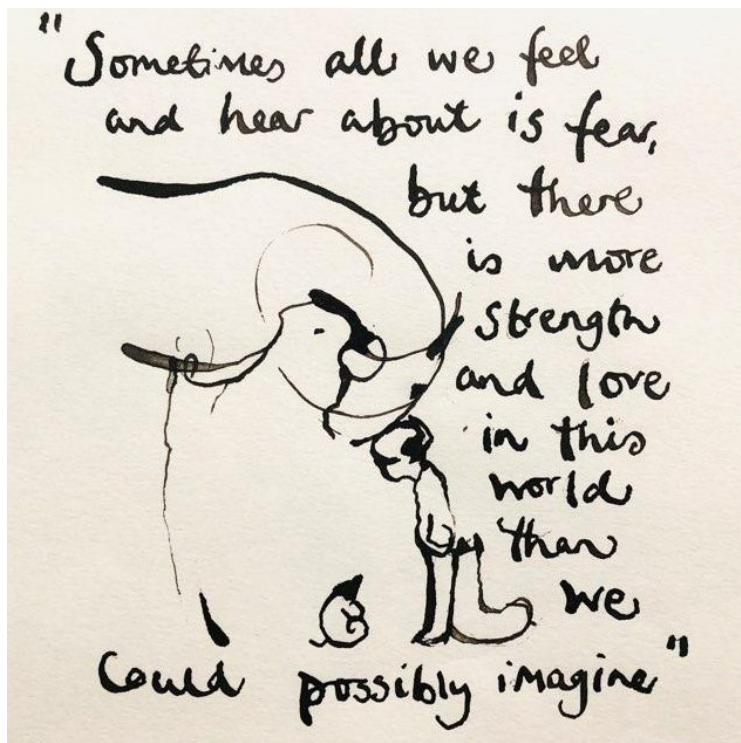 "Sometimes all we feel
and hear about is fear,
but there
is more
strength
and love
in this
world
than
we
could possibly imagine"